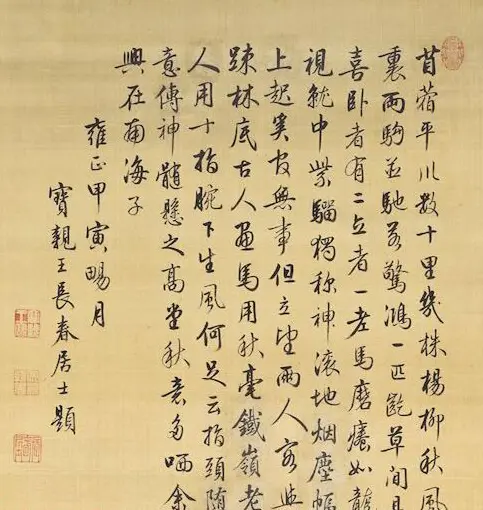 苜蓿平川数十里幾株楊柳秋風
裏兩駒並馳若驚鴻一匹齕草間且
喜卧者有二立者一老馬磨癢如龍
視就中紫騮獨稱神滾地烟塵幅
上起奚官無事但立望兩人容與
踈林底古人畫馬用秋毫鐵嶺老
人用十指腕下生風何足云指頭随
意傳神髓懸之高堂秋意多哂余
興在南海子
雍正甲寅暘月
寶親王長春居士題